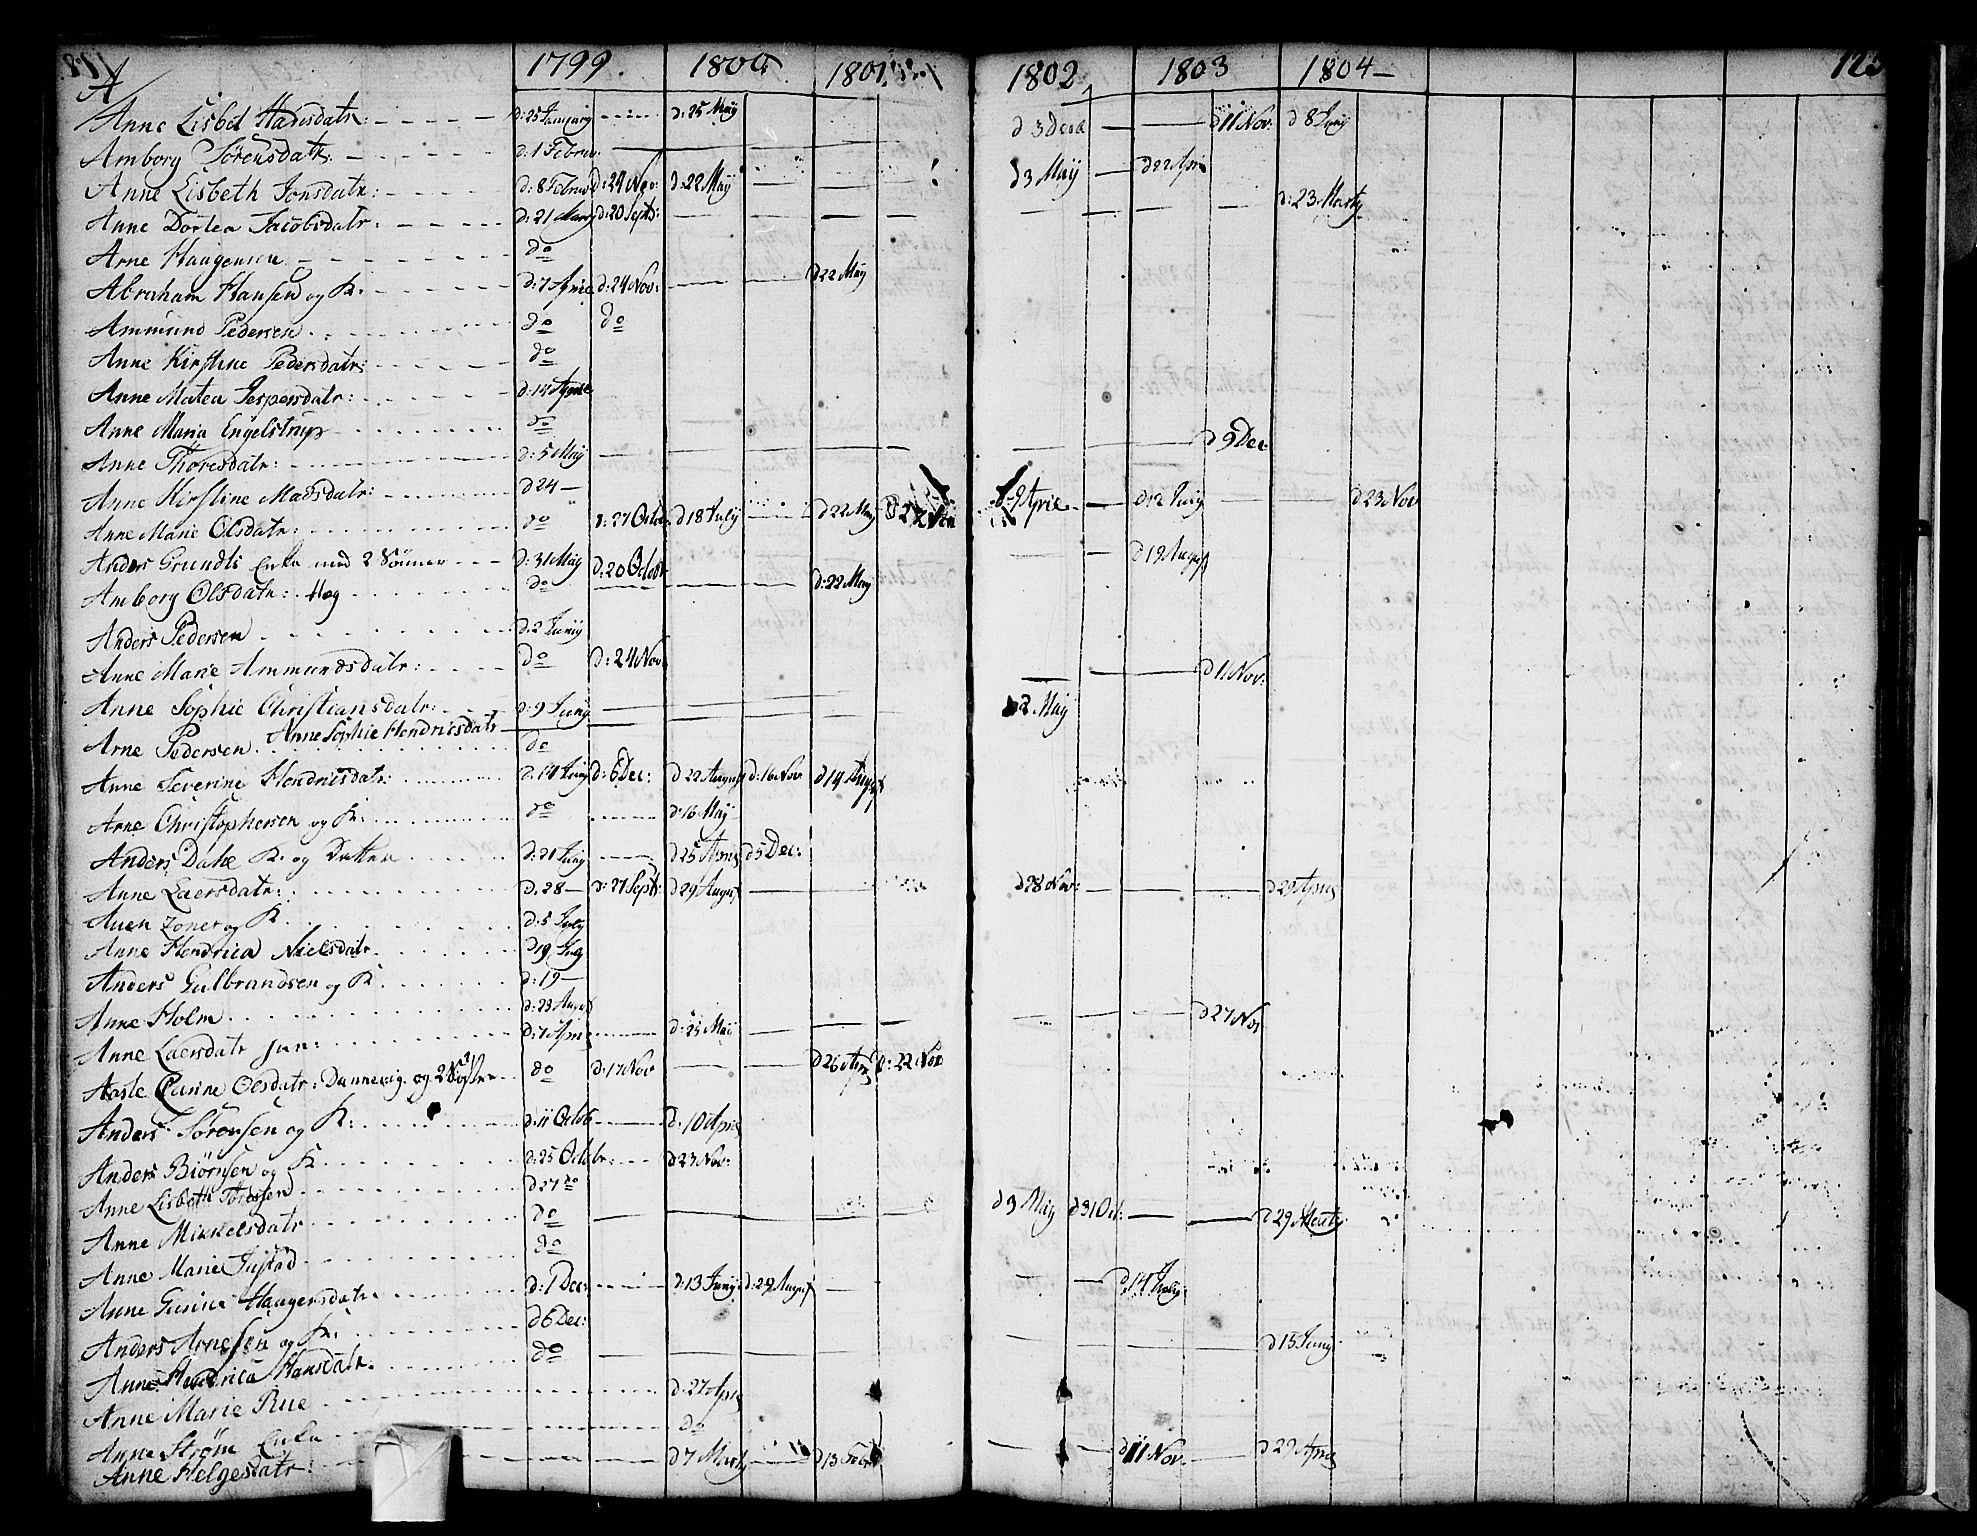 A 1799. 1800 1801. 1802 1803 1804 –
Anne Lisbet Hansdatr: d: 25 Januarij d: 25 Maij d 3 d 11 Nov: d 8 Junij
Amborg Sörensdatr: d: 1 Februr
Anne Lisbeth Jonsdatr: d: 8 Febru d: 24 Nov: d: 22 Maij d 3 Maij d 22 Apri
Anne Dortea Jacobsdatr. d: 21 d: 20 Septb: d: 23 Marty
Arne Haagensen do
Abraham Hansen og K. d: 7 d: 24 Nov: d 22 Maij
Ammund Pedersen do do
Anne Kirstine Pedersdatr: do
Anne Matea Jespersdatr: d: 14
Anne Maria Engelstrup do
Anne Thoresdatr: d: 5 Maij d 9 Dec:
Anne Kirstine Madsdatr: d 24 –
Anne Marie Olsdatr: do d: 27 Octob. d 18 Julij d 22 Maij d 22 Nov d 9 d 12 Junij d 23 Nov
Anders Grundts Enke med 2 Sönner d: 31 Maij d: 20 Octobr d 19 August
Amborg Olsdatr: Hog do d: 22 Maij
Anders Pedersen d: 2 Junij
Anne Marie Ammundsdatr: do d: 24 Nov. d 11 Nov:
Anne Sophie Christiansdatr: d: 9 Junij d 2 Maij
Anne Sophie Hendricsdatr
Arne Pedersen do
Anne Severine Hendricsdatr: d: 14 Junij d: 6 Dec: d 22 August d: 16 Nov d 14 August
Arne Christophersen og K: do d: 16 Maij
Anders Dahl K. og Datter d: 21 Junij d 25 d 5 Dec:
Anne Laersdatr: d. 28 – d: 27 Septb: d 29 August d 28 Nov: d 29 April
Auen Zoner og K. d: 5 July
Anne Hendrica Nielsdatr d 19 July
Anders Gulbrandsen og K d: 19 –
Anne Holm d: 23 August d 27 Nov
Anne Laersdatr jun: d: 7 d: 25 Maij
Aasle Olsdatr: Dannevig. og 2 do d: 17 Nov d 26 d: 22 Nov
Anders Sörensen og K: d: 11 Octob d: 10
Anders Biörnsen og K d: 25 Octobr. d 23 Nov:
Anne Lisbeth d 27 do
Anne Mikkelsdatr do d 3 Maij d 31 Oct: d 29 Marty
Anne Marie do
Anne Gurine Haagensdatr. d: 1 Dec: d: 13 Junij d: 29 August d 14 July
Anders Arnesen og K. d 6 Dec:
Anne Hendrica Hansdatr. do d 15 Junij
Anne Marie Rue d: 27
Anne Ström Enke do
Anne Helgesdatr: d 7 Marty d 13 Febr d 11 Nov. d 29